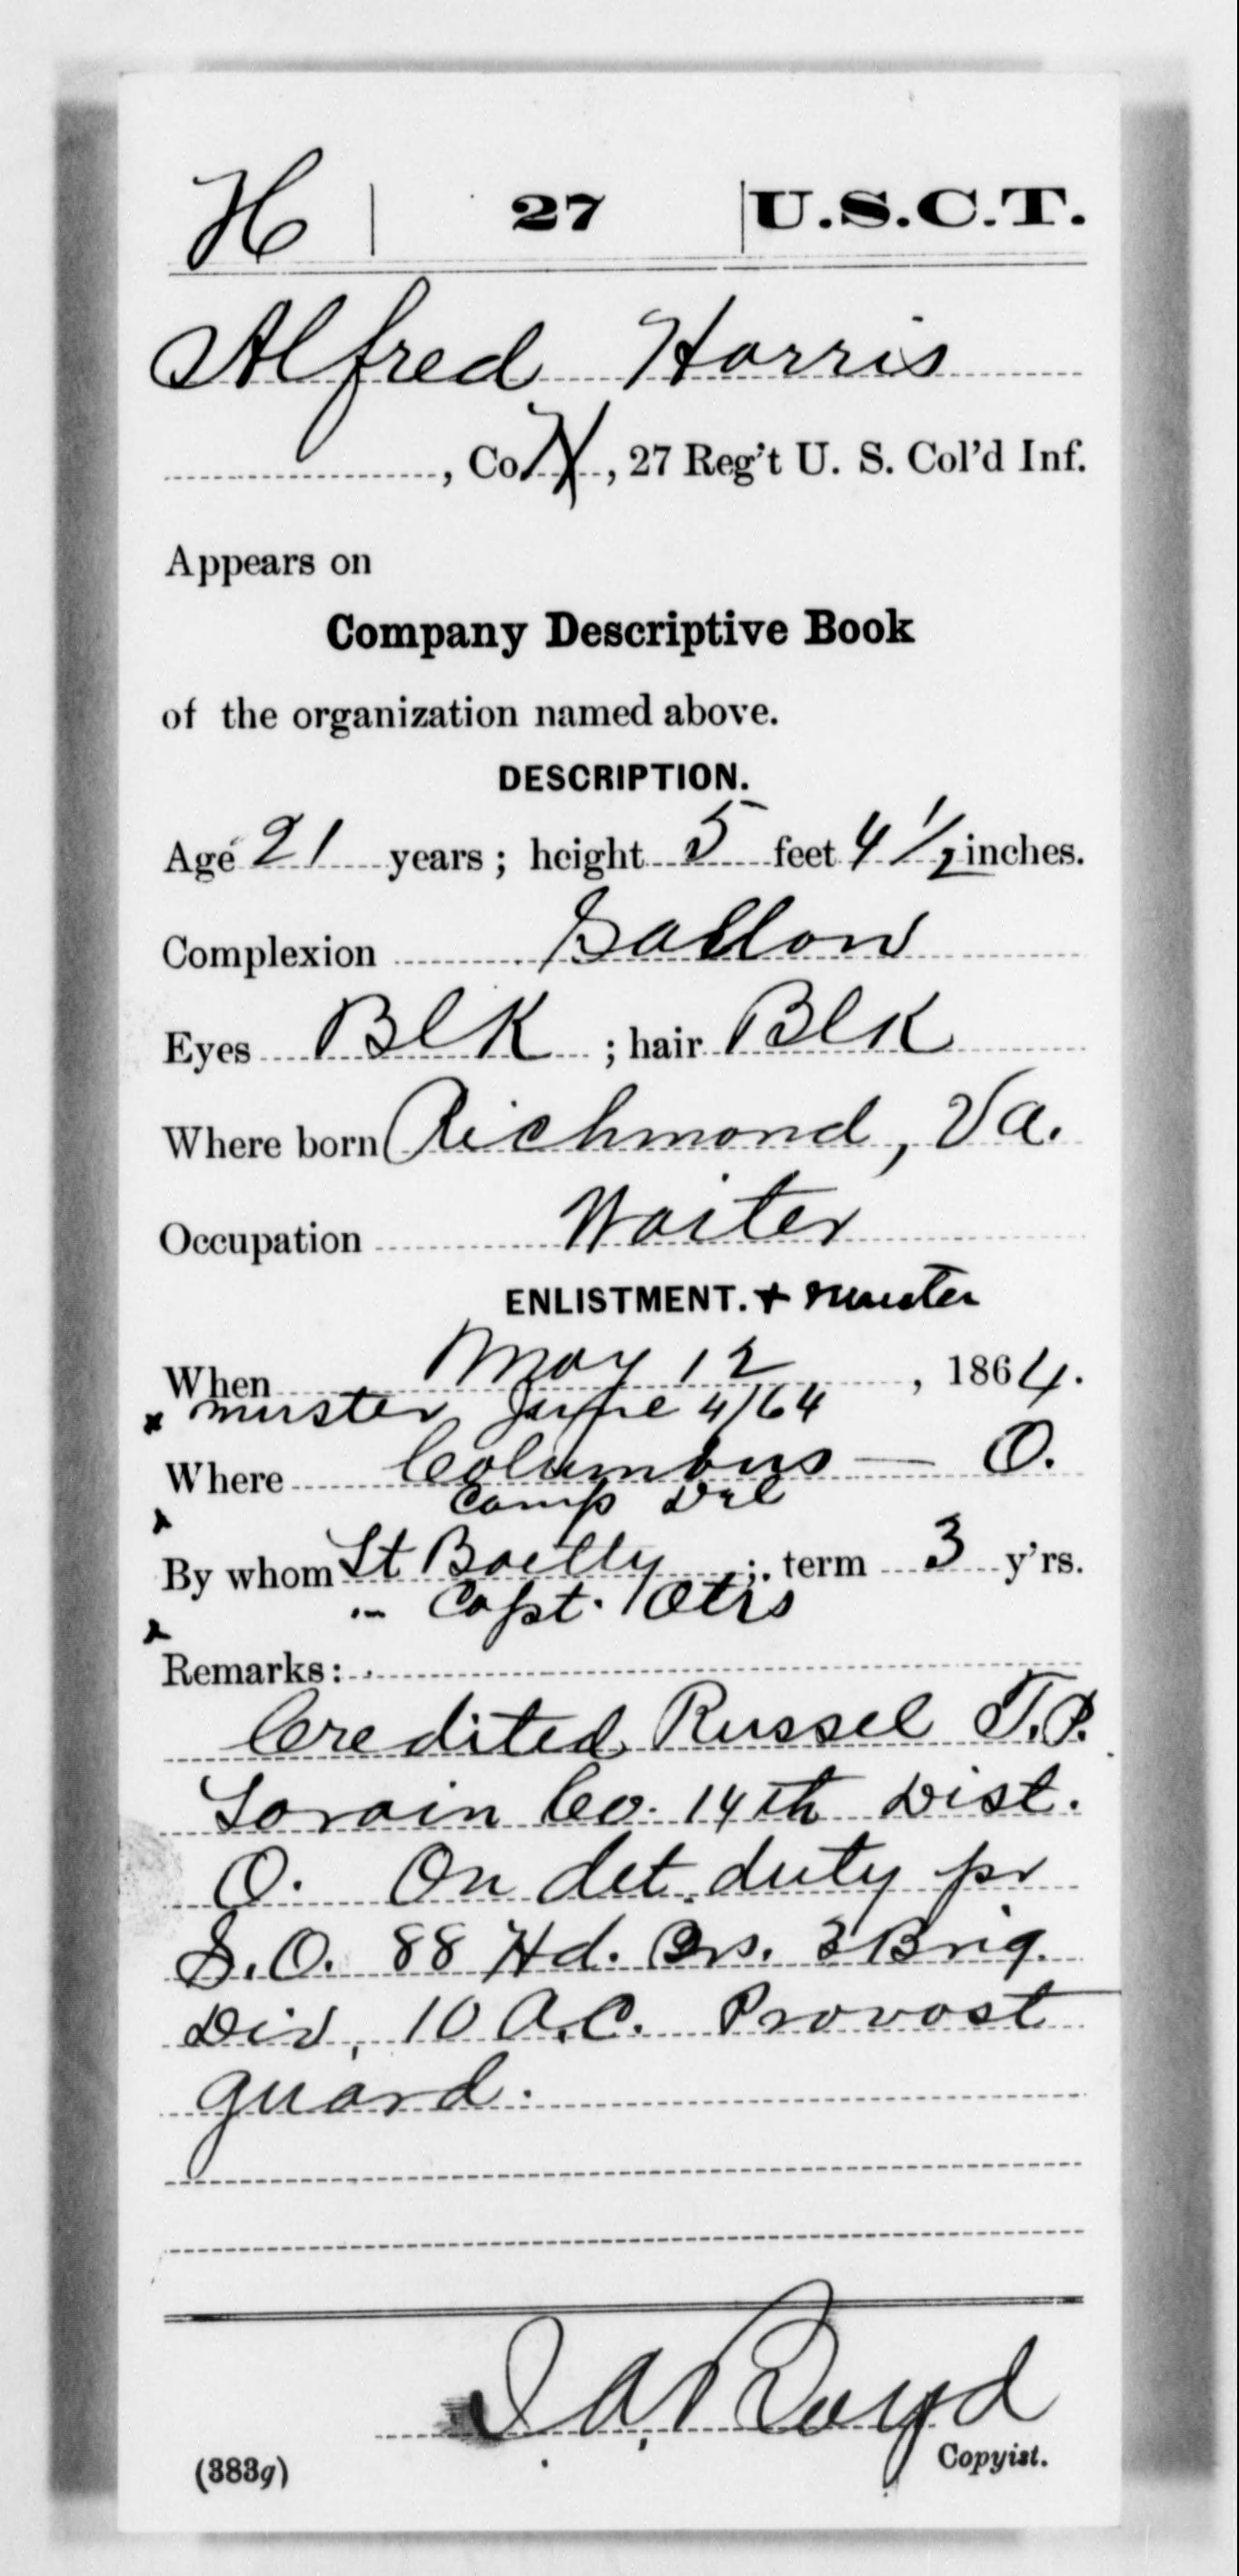 H | 27 | U.S.C.T.
Alfred Harris
, Co. H, 27 Reg't U. S. Col'd Inf.
Appears on
Company Descriptive Book
of the organization named above.
DESCRIPTION.
Age 21 years; height 5 feet 4 1/2 inches.
Complexion Sallow
Eyes Blk; hair Blk
Where born Richmond, Va.
Occupation Waiter
ENLISTMENT. + muster
When May 12, 1864.
x muster June 4/64
Where Columbus — O.
x Camp Del
By whom Lt Bailly; term 3 y'rs.
x " Capt. Otis
Remarks:
Credited Russel T.P.
Lorain Co. 14th Dist.
O. On det. duty pr
S.O. 88 Hd. Qrs. 3 Brig.
Div, 10 A.C. Provost
guard.
Boyd
(383g) Copyist.